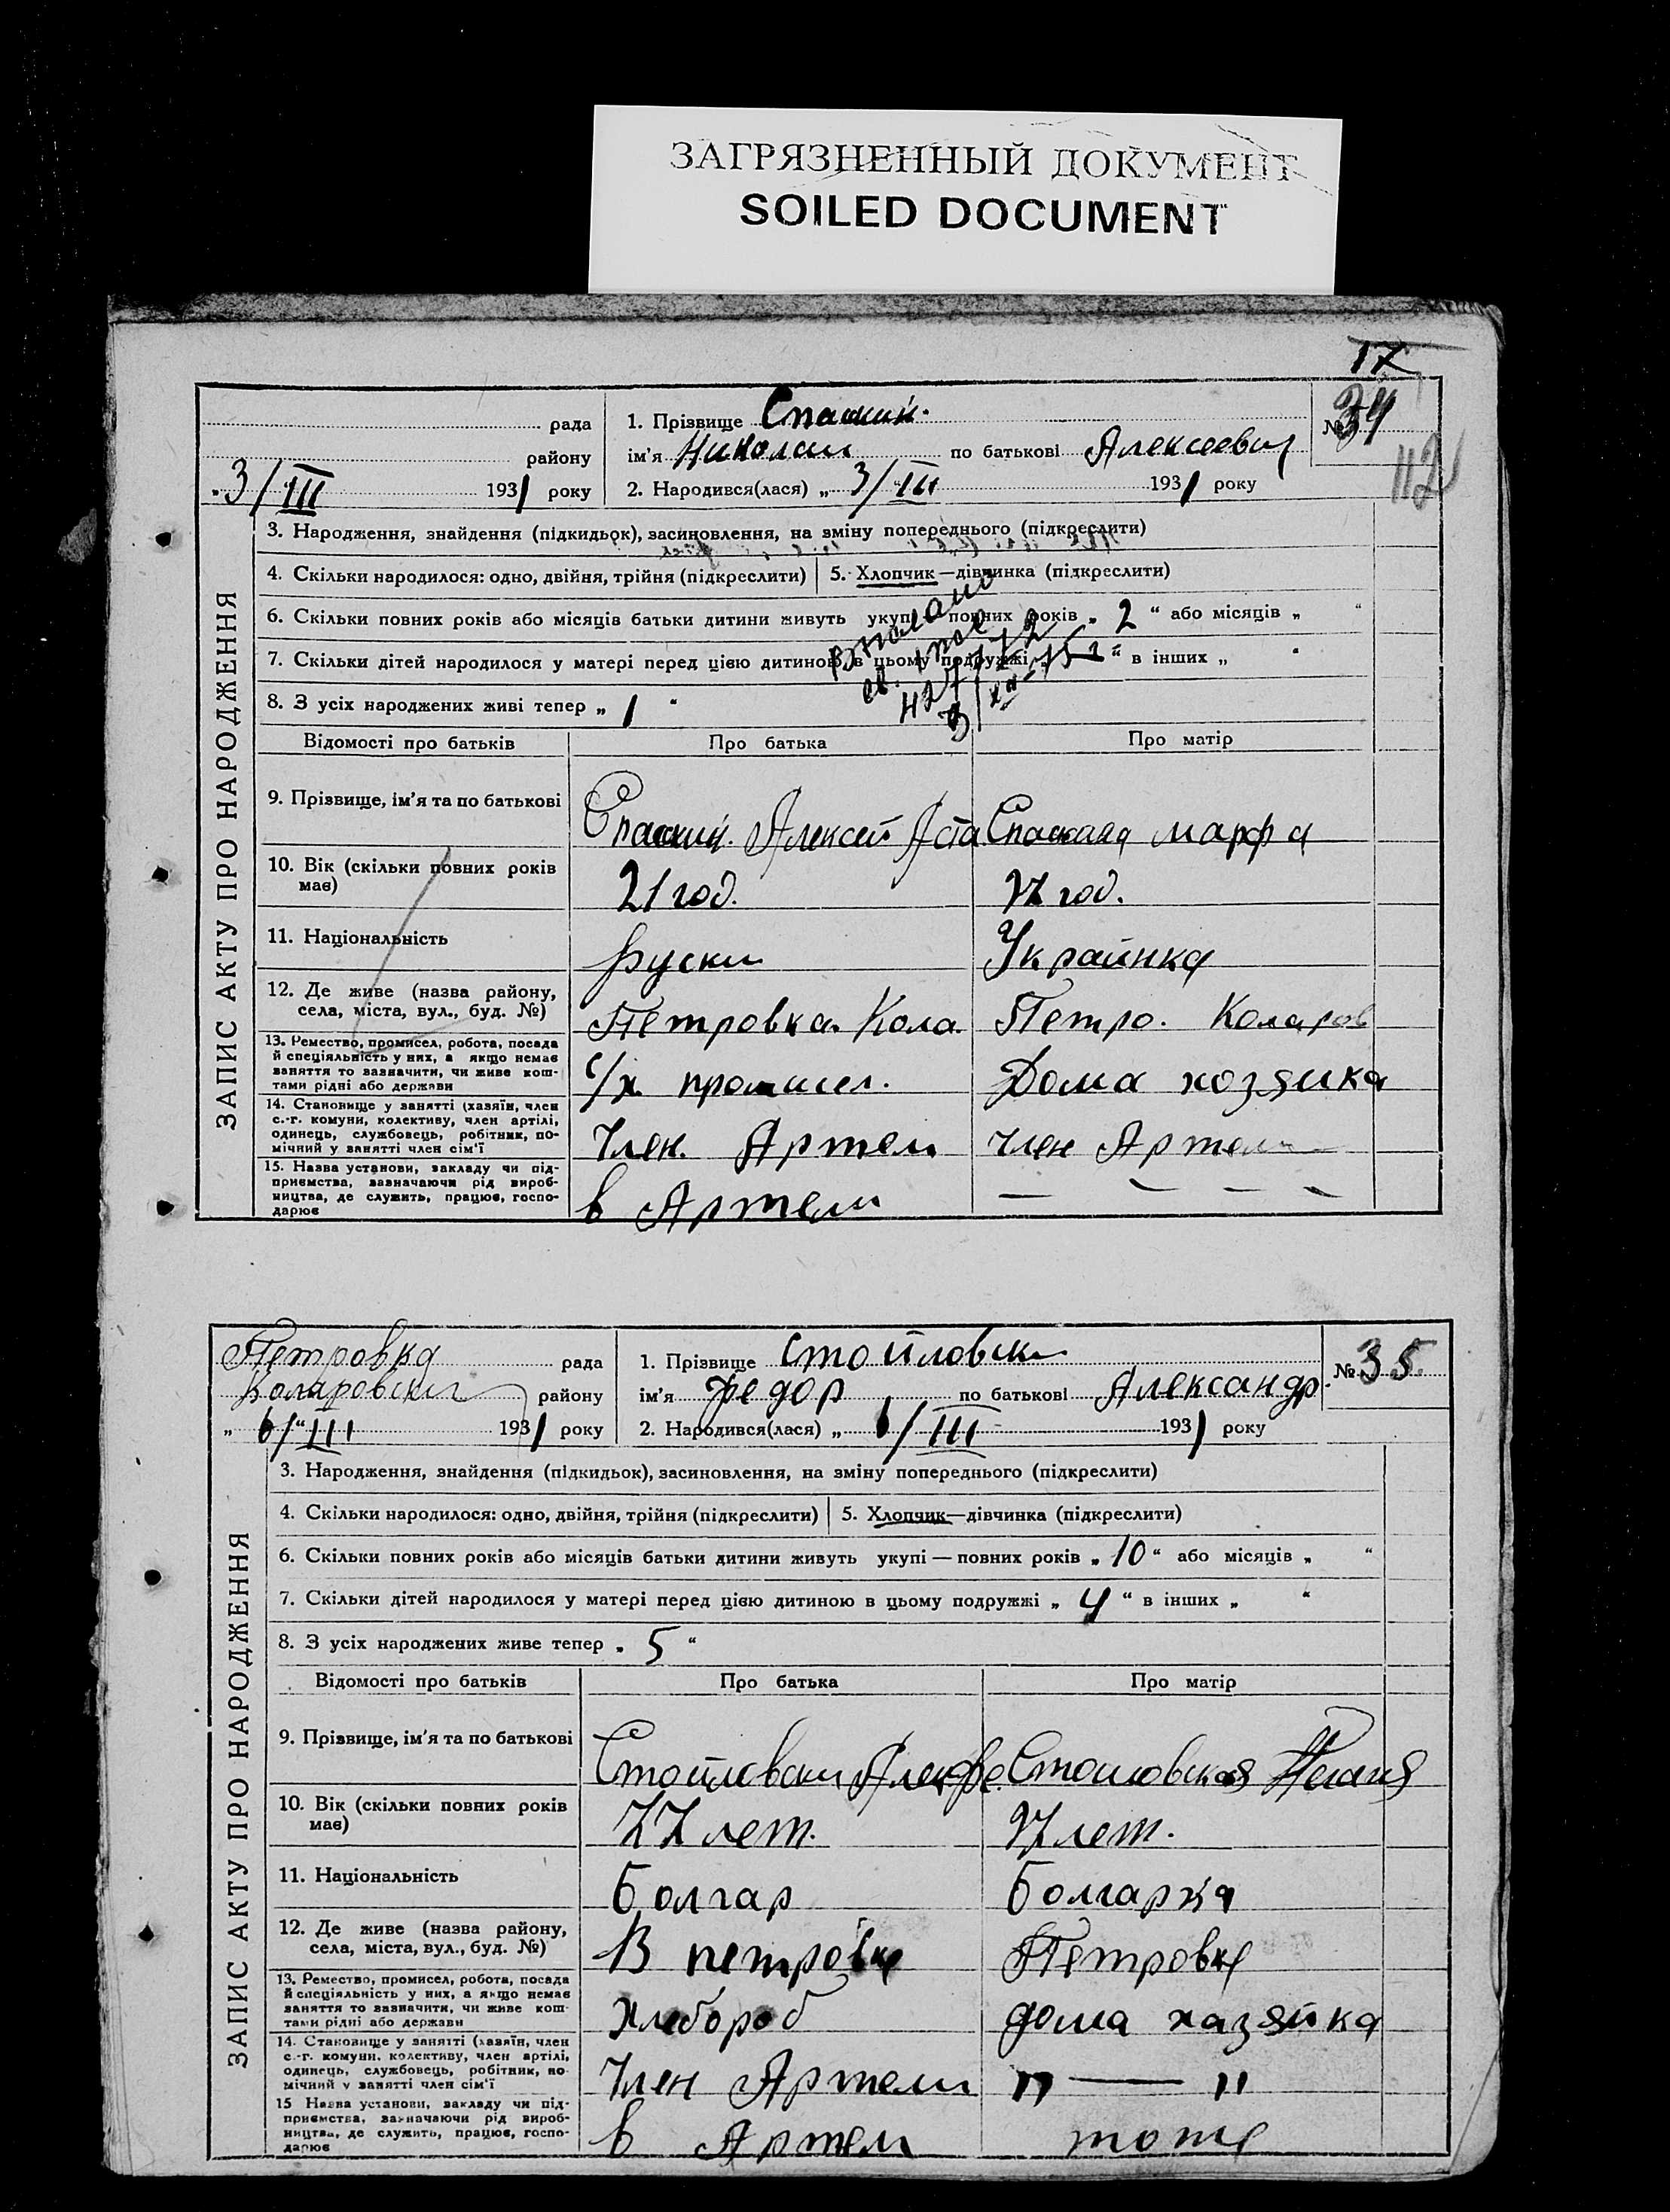 ЗАГРЯЗНЕННЫЙ ДОКУМЕНТ
SOILED DOCUMENT
17
рада
1. Прізвище Спаский
№ 34
району
ім'я Николай по батькові Алексеевич
112
3/III 1931 року
2. Народився(лася) „ 3/III 1931 року
ЗАПИС АКТУ ПРО НАРОДЖЕННЯ
3. Народження, знайдення (підкидьок), засиновлення, на зміну попереднього (підкреслити)
4. Скільки народилося: одно, двійня, трійня (підкреслити)
5. Хлопчик—дівчинка (підкреслити)
6. Скільки повних років або місяців батьки дитини живуть укупі — повних років „ 2 “ або місяців „ “
7. Скільки дітей народилося у матері перед цією дитиною в цьому подружжі „ “ в інших „ “
8. З усіх народжених живі тепер „ 1 “
Відомості про батьків
Про батька
Про матір
9. Прізвище, ім'я та по батькові
Спаский Алексей Аста
Спаская Марфа
10. Вік (скільки повних років має)
21 год.
год.
11. Національність
Руски
Украинка
12. Де живе (назва району,
села, міста, вул., буд. №)
Петровка Кола.
Петро. Коларов
13. Ремество, промисел, робота, посада
й спеціяльність у них, а якщо немає
заняття то зазначити, чи живе кош-
тами рідні або держави
с/х промисел.
Дома хозяика
14. Становище у занятті (хазяїн, член
с.-г. комуни, колективу, член артілі,
одинець, службовець, робітник, по-
мічний у занятті член сім'ї
Член. Артели
Член Артели
15. Назва установи, закладу чи під-
приємства, зазначаючи рід вироб-
ництва, де служить, працює, госпо-
дарює
в Артели
— — — —
Петровка рада
1. Прізвище Стойловски
№ 35
Коларовски району
ім'я Федор по батькові Александр.
„ 6/III 1931 року
2. Народився(лася) „ 6/III 1931 року
ЗАПИС АКТУ ПРО НАРОДЖЕННЯ
3. Народження, знайдення (підкидьок), засиновлення, на зміну попереднього (підкреслити)
4. Скільки народилося: одно, двійня, трійня (підкреслити)
5. Хлопчик—дівчинка (підкреслити)
6. Скільки повних років або місяців батьки дитини живуть укупі — повних років „ 10 “ або місяців „ “
7. Скільки дітей народилося у матері перед цією дитиною в цьому подружжі „ 4 “ в інших „ “
8. З усіх народжених живе тепер „ 5 “
Відомості про батьків
Про батька
Про матір
9. Прізвище, ім'я та по батькові
Стойловски
Стоиловская
10. Вік (скільки повних років
має)
лет.
лет.
11. Національність
Болгар
Болгарка
12. Де живе (назва району,
села, міста, вул., буд. №)
В петровке
Петровке
13. Ремество, промисел, робота, посада
й спеціяльність у них, а якщо немає
заняття то зазначити, чи живе кош-
тами рідні або держави
Хлебороб
дома хазяйка
14. Становище у занятті (хазяїн, член
с.-г. комуни, колективу, член артілі,
одинець, службовець, робітник, по-
мічний у занятті член сім'ї
Член Артели
„ — „
15 Назва установи, закладу чи під-
приємства, зазначаючи рід вироб-
ництва, де служить, працює, госпо-
дарює
в Артели
тоже